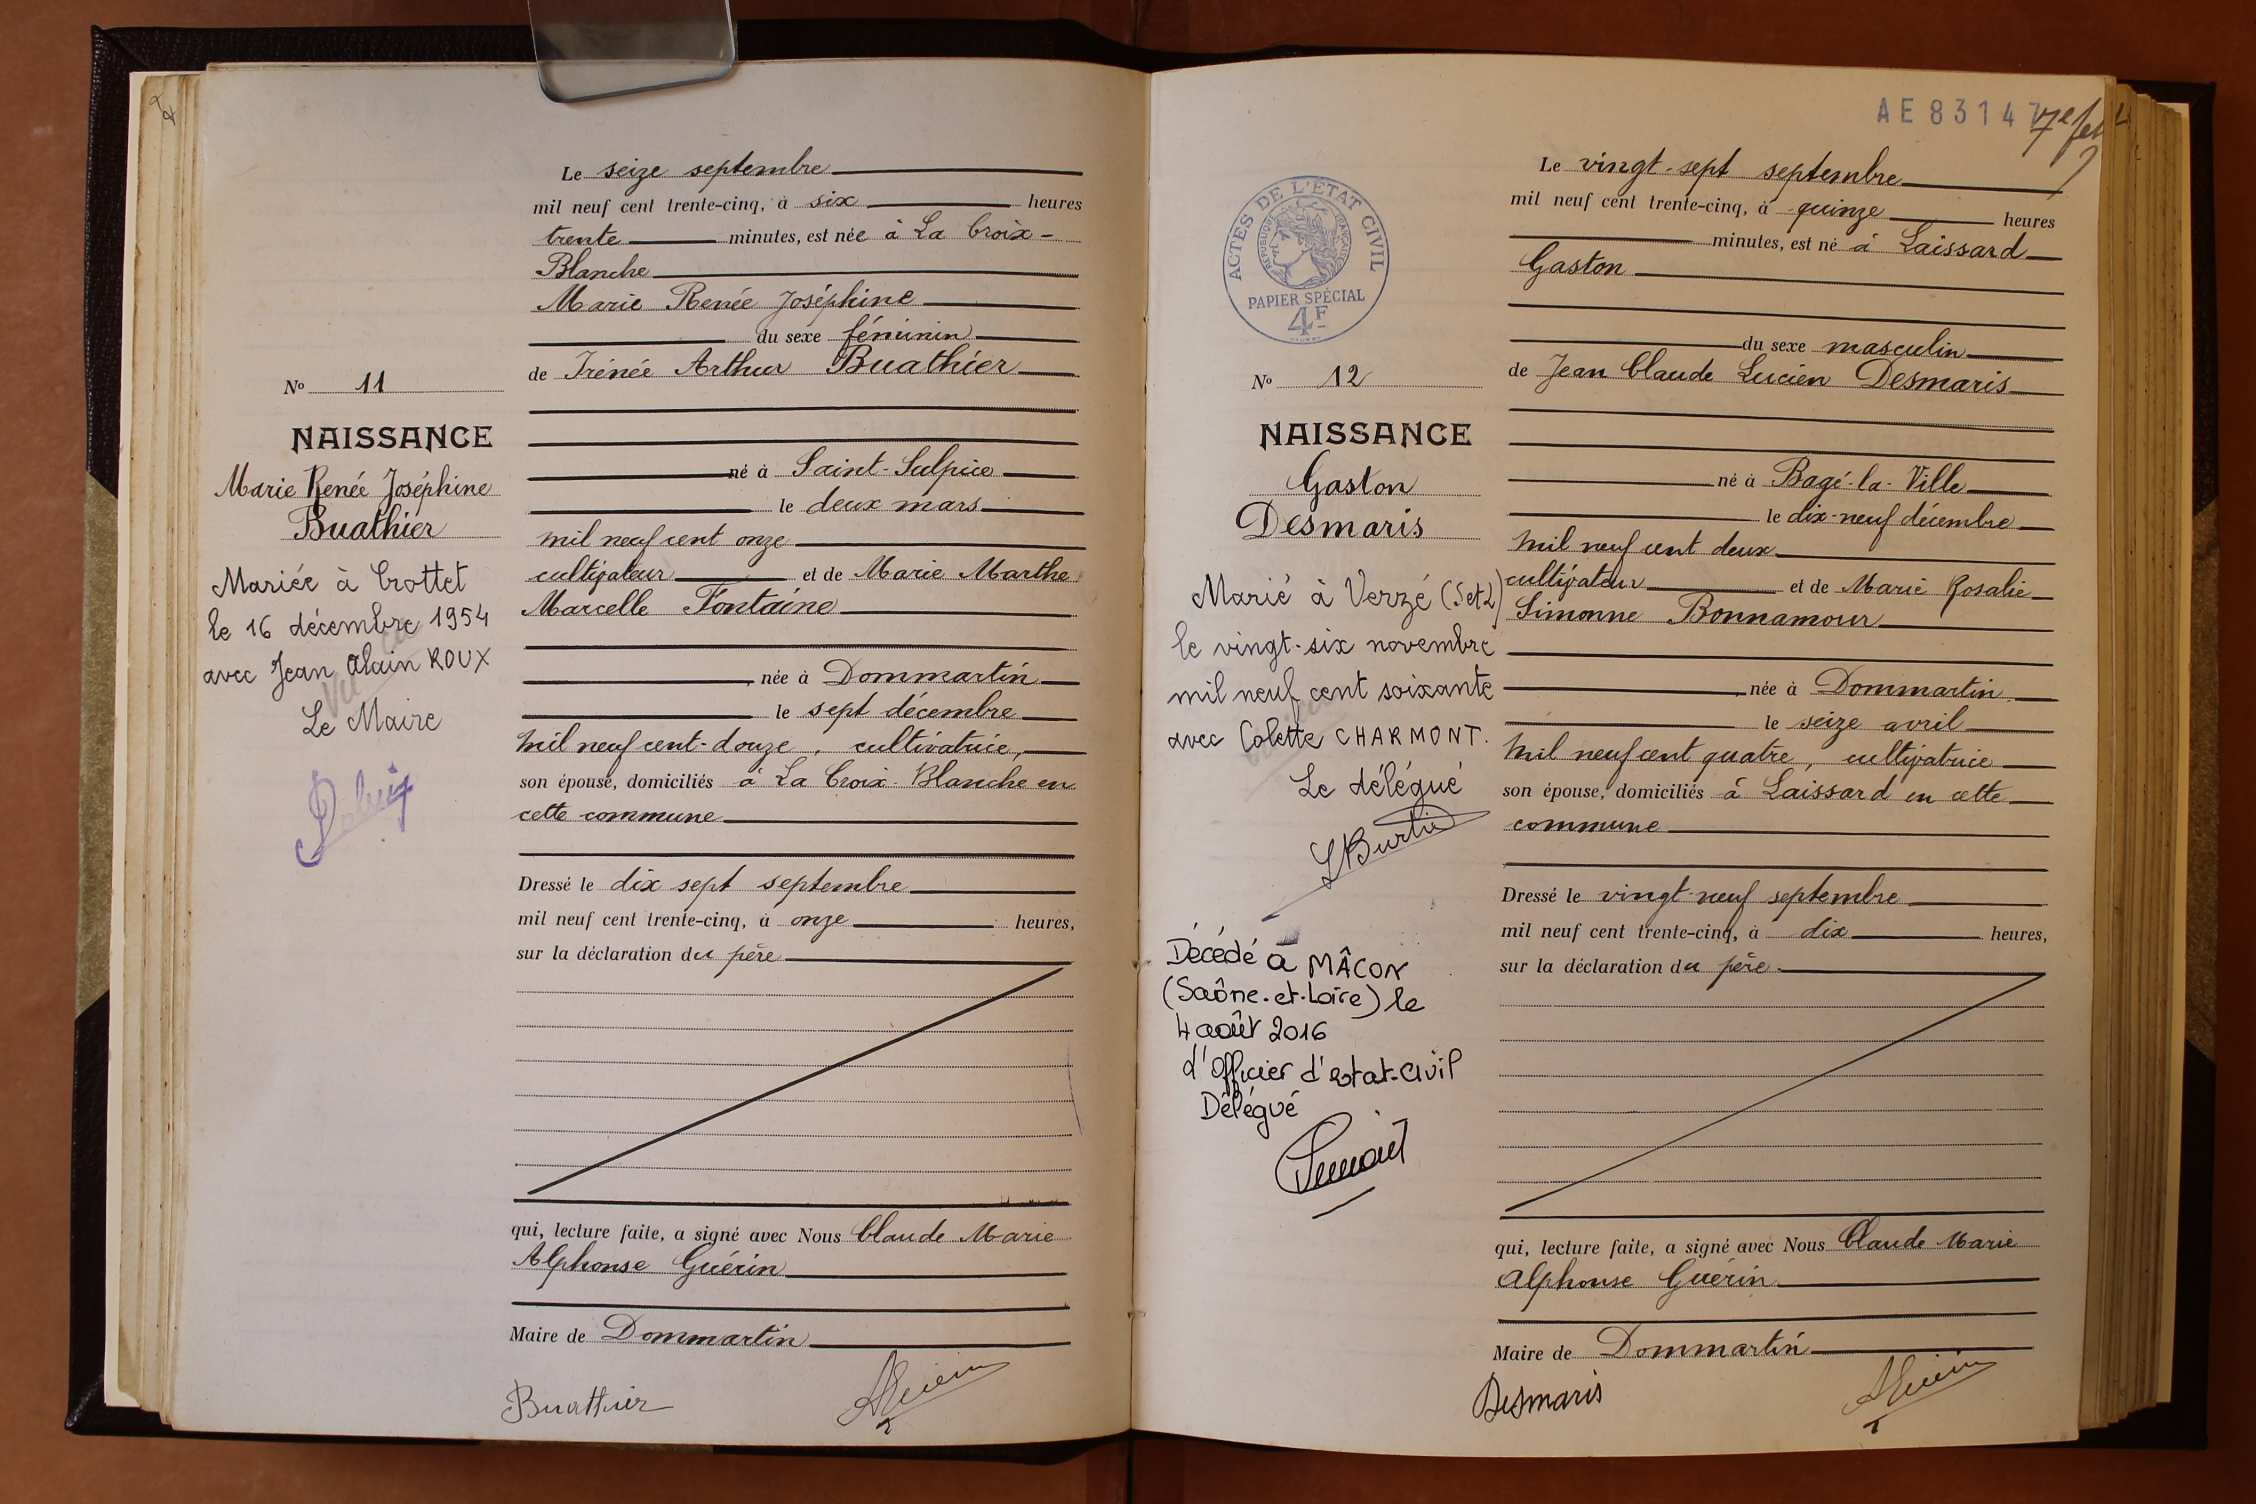 Le seize septembre
mil neuf cent trente-cinq, à six heures
trente minutes, est née à La Croix-
Blanche
Marie Renée Joséphine
du sexe féminin
de Irénée Arthur Buathier
né à Saint-Sulpice
le deux mars
mil neuf cent onze
cultivateur et de Marie Marthe
Marcelle Fontaine
née à Dommartin
le sept décembre
mil neuf cent-douze, cultivatrice,
son épouse, domiciliés à La Croix-Blanche en
cette commune
Dressé le dix sept septembre
mil neuf cent trente-cinq, à onze heures,
sur la déclaration du père
qui, lecture faite, a signé avec Nous Claude Marie
Alphonse Guérin
Maire de Dommartin
Buathier
AGuérin
No 11
NAISSANCE
Marie Renée Joséphine
Buathier
Mariée à Crottet
le 16 décembre 1954
avec Jean Alain ROUX
Le Maire
AE 83147
7e feu
ACTES DE L'ÉTAT CIVIL
RÉPUBLIQUE FRANÇAISE
PAPIER SPÉCIAL
4F
No 12
NAISSANCE
Gaston
Desmaris
Marié à Verzé (S et L)
le vingt-six novembre
mil neuf cent soixante
avec Colette CHARMONT.
Le délégué
Décédé à MÂCON
(Saône-et-Loire) le
4 août 2016
L'Officier d'état-civil
Délégué
Le vingt-sept septembre
mil neuf cent trente-cinq, à quinze heures
minutes, est né à Laissard
Gaston
du sexe masculin
de Jean Claude Lucien Desmaris
né à Bagé-la-Ville
le dix-neuf décembre
mil neuf cent deux
cultivateur et de Marie Rosalie
Simonne Bonnamour
née à Dommartin
le seize avril
mil neuf cent quatre, cultivatrice
son épouse, domiciliés à Laissard en cette
commune
Dressé le vingt-neuf septembre
mil neuf cent trente-cinq, à dix heures,
sur la déclaration du père
qui, lecture faite, a signé avec Nous Claude Marie
Alphonse Guérin
Maire de Dommartin
Desmaris
AGuérin